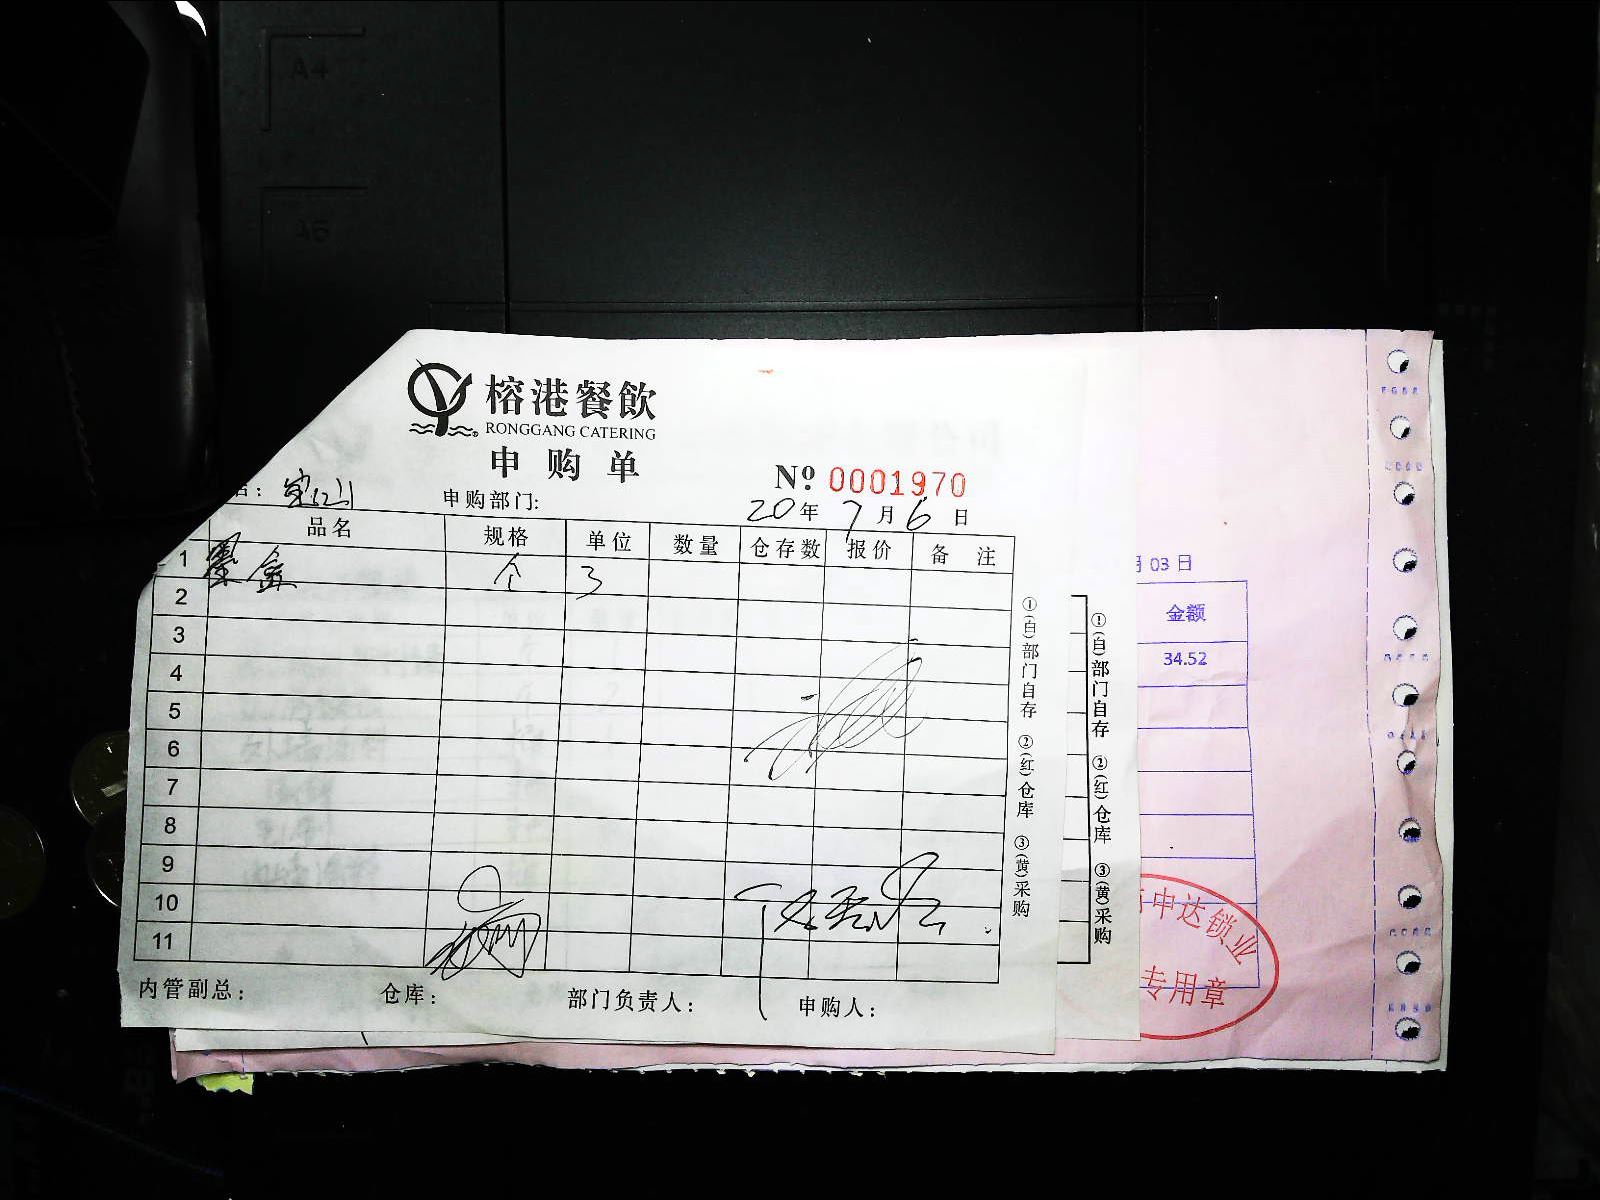 A4
A6
榕港餐飲
RONGGANG CATERING
申购单
№ 0001970
店： 宝山
申购部门:
20年 7月 6日
品名 规格 单位 数量 仓存数 报价 备 注
1 墨盒 个 3
2
3
4
5
6
7
8
9
10
11
内管副总： 仓库： 部门负责人： 申购人：
①(白)部门自存 ②(红)仓库 ③(黄)采购
①(白)部门自存 ②(红)仓库 ③(黄)采购
月 03 日
金额
34.52
中达锁业
专用章